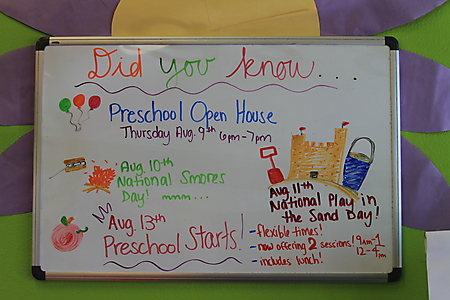 Did you know....
Preschool Open House
Thursday Aug. 9th 6pm-7pm
Aug. 10th
National Smores
Day! mmm...
Aug. 11th
National Play in
the Sand Day!
Aug. 13th
Preschool Starts!
- flexible times!
- now offering 2 sessions! 9am-1
12-4pm
- includes lunch!